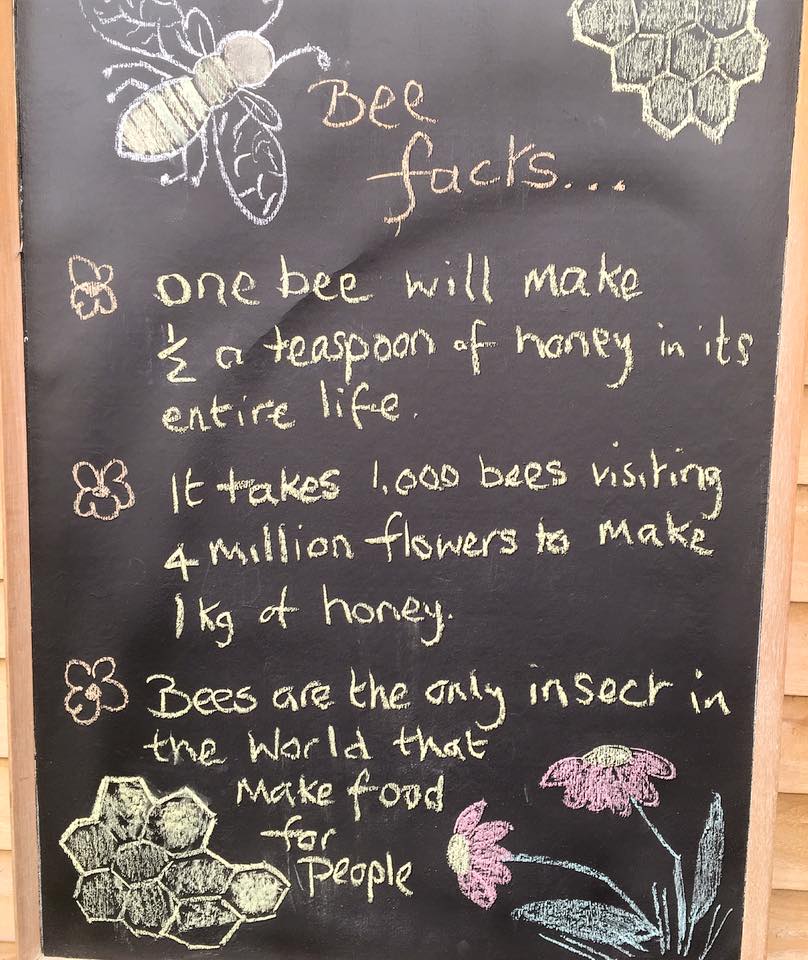 Bee
facts...
one bee will make
1/2 a teaspoon of honey in its
entire life.
It takes 1,000 bees visiting
4 million flowers to make
1kg of honey.
Bees are the only insect in
the world that
make food
for
people